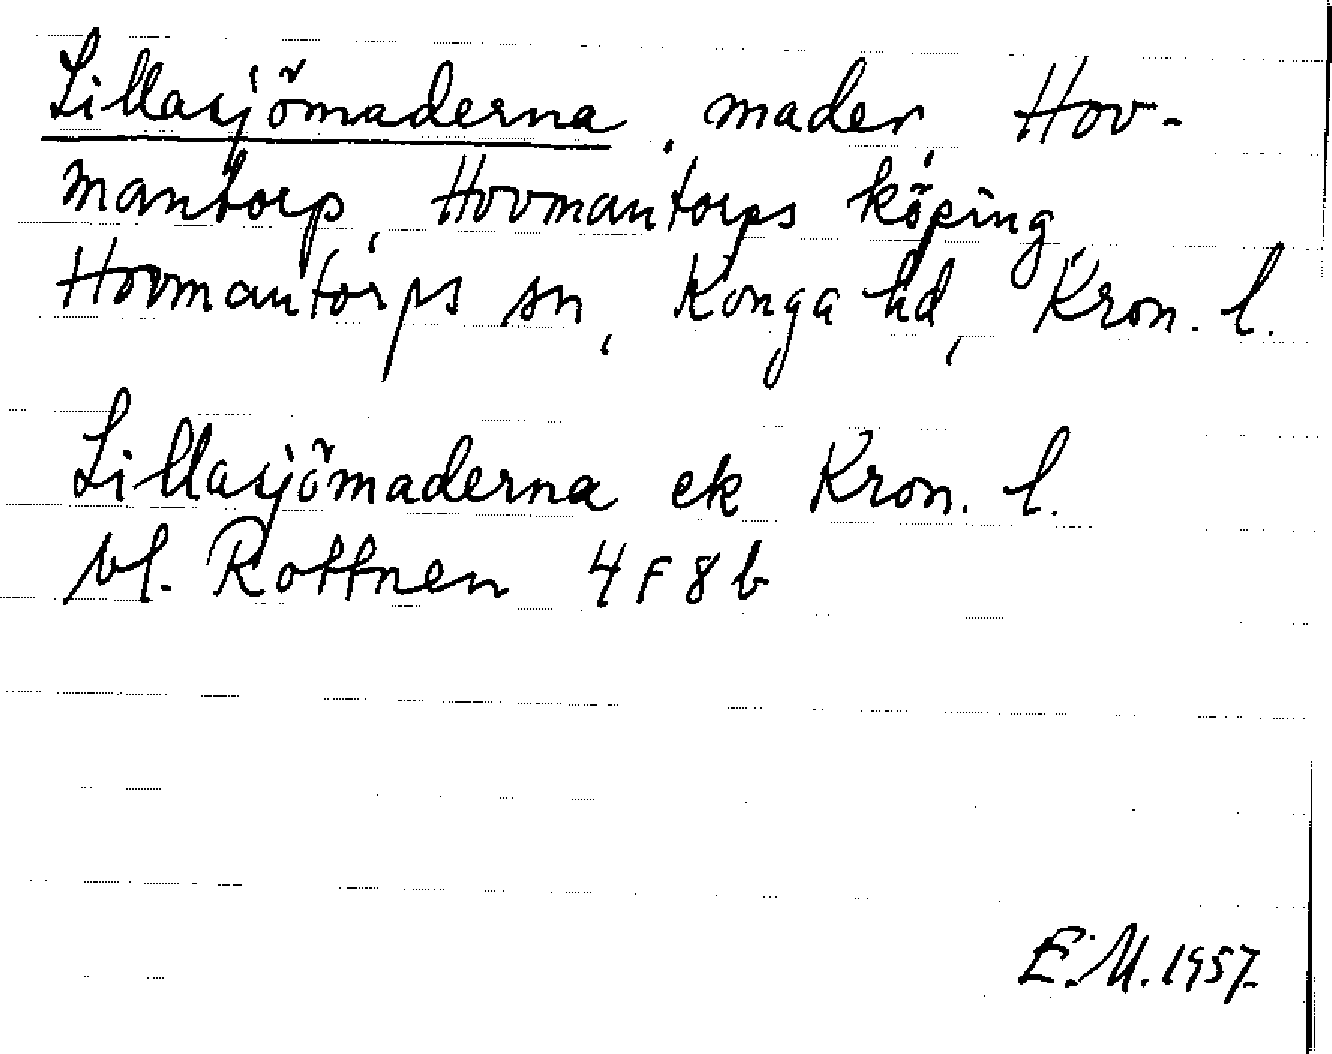 Lillasjömaderna, mader, Hov-
mantorp, Hovmantorps köping,
Hovmantorps sn, Konga hd, Kron. l.
Lillasjömaderna ek Kron. l.
bl. Rottnen 4 F 8 b
E. M. 1957.